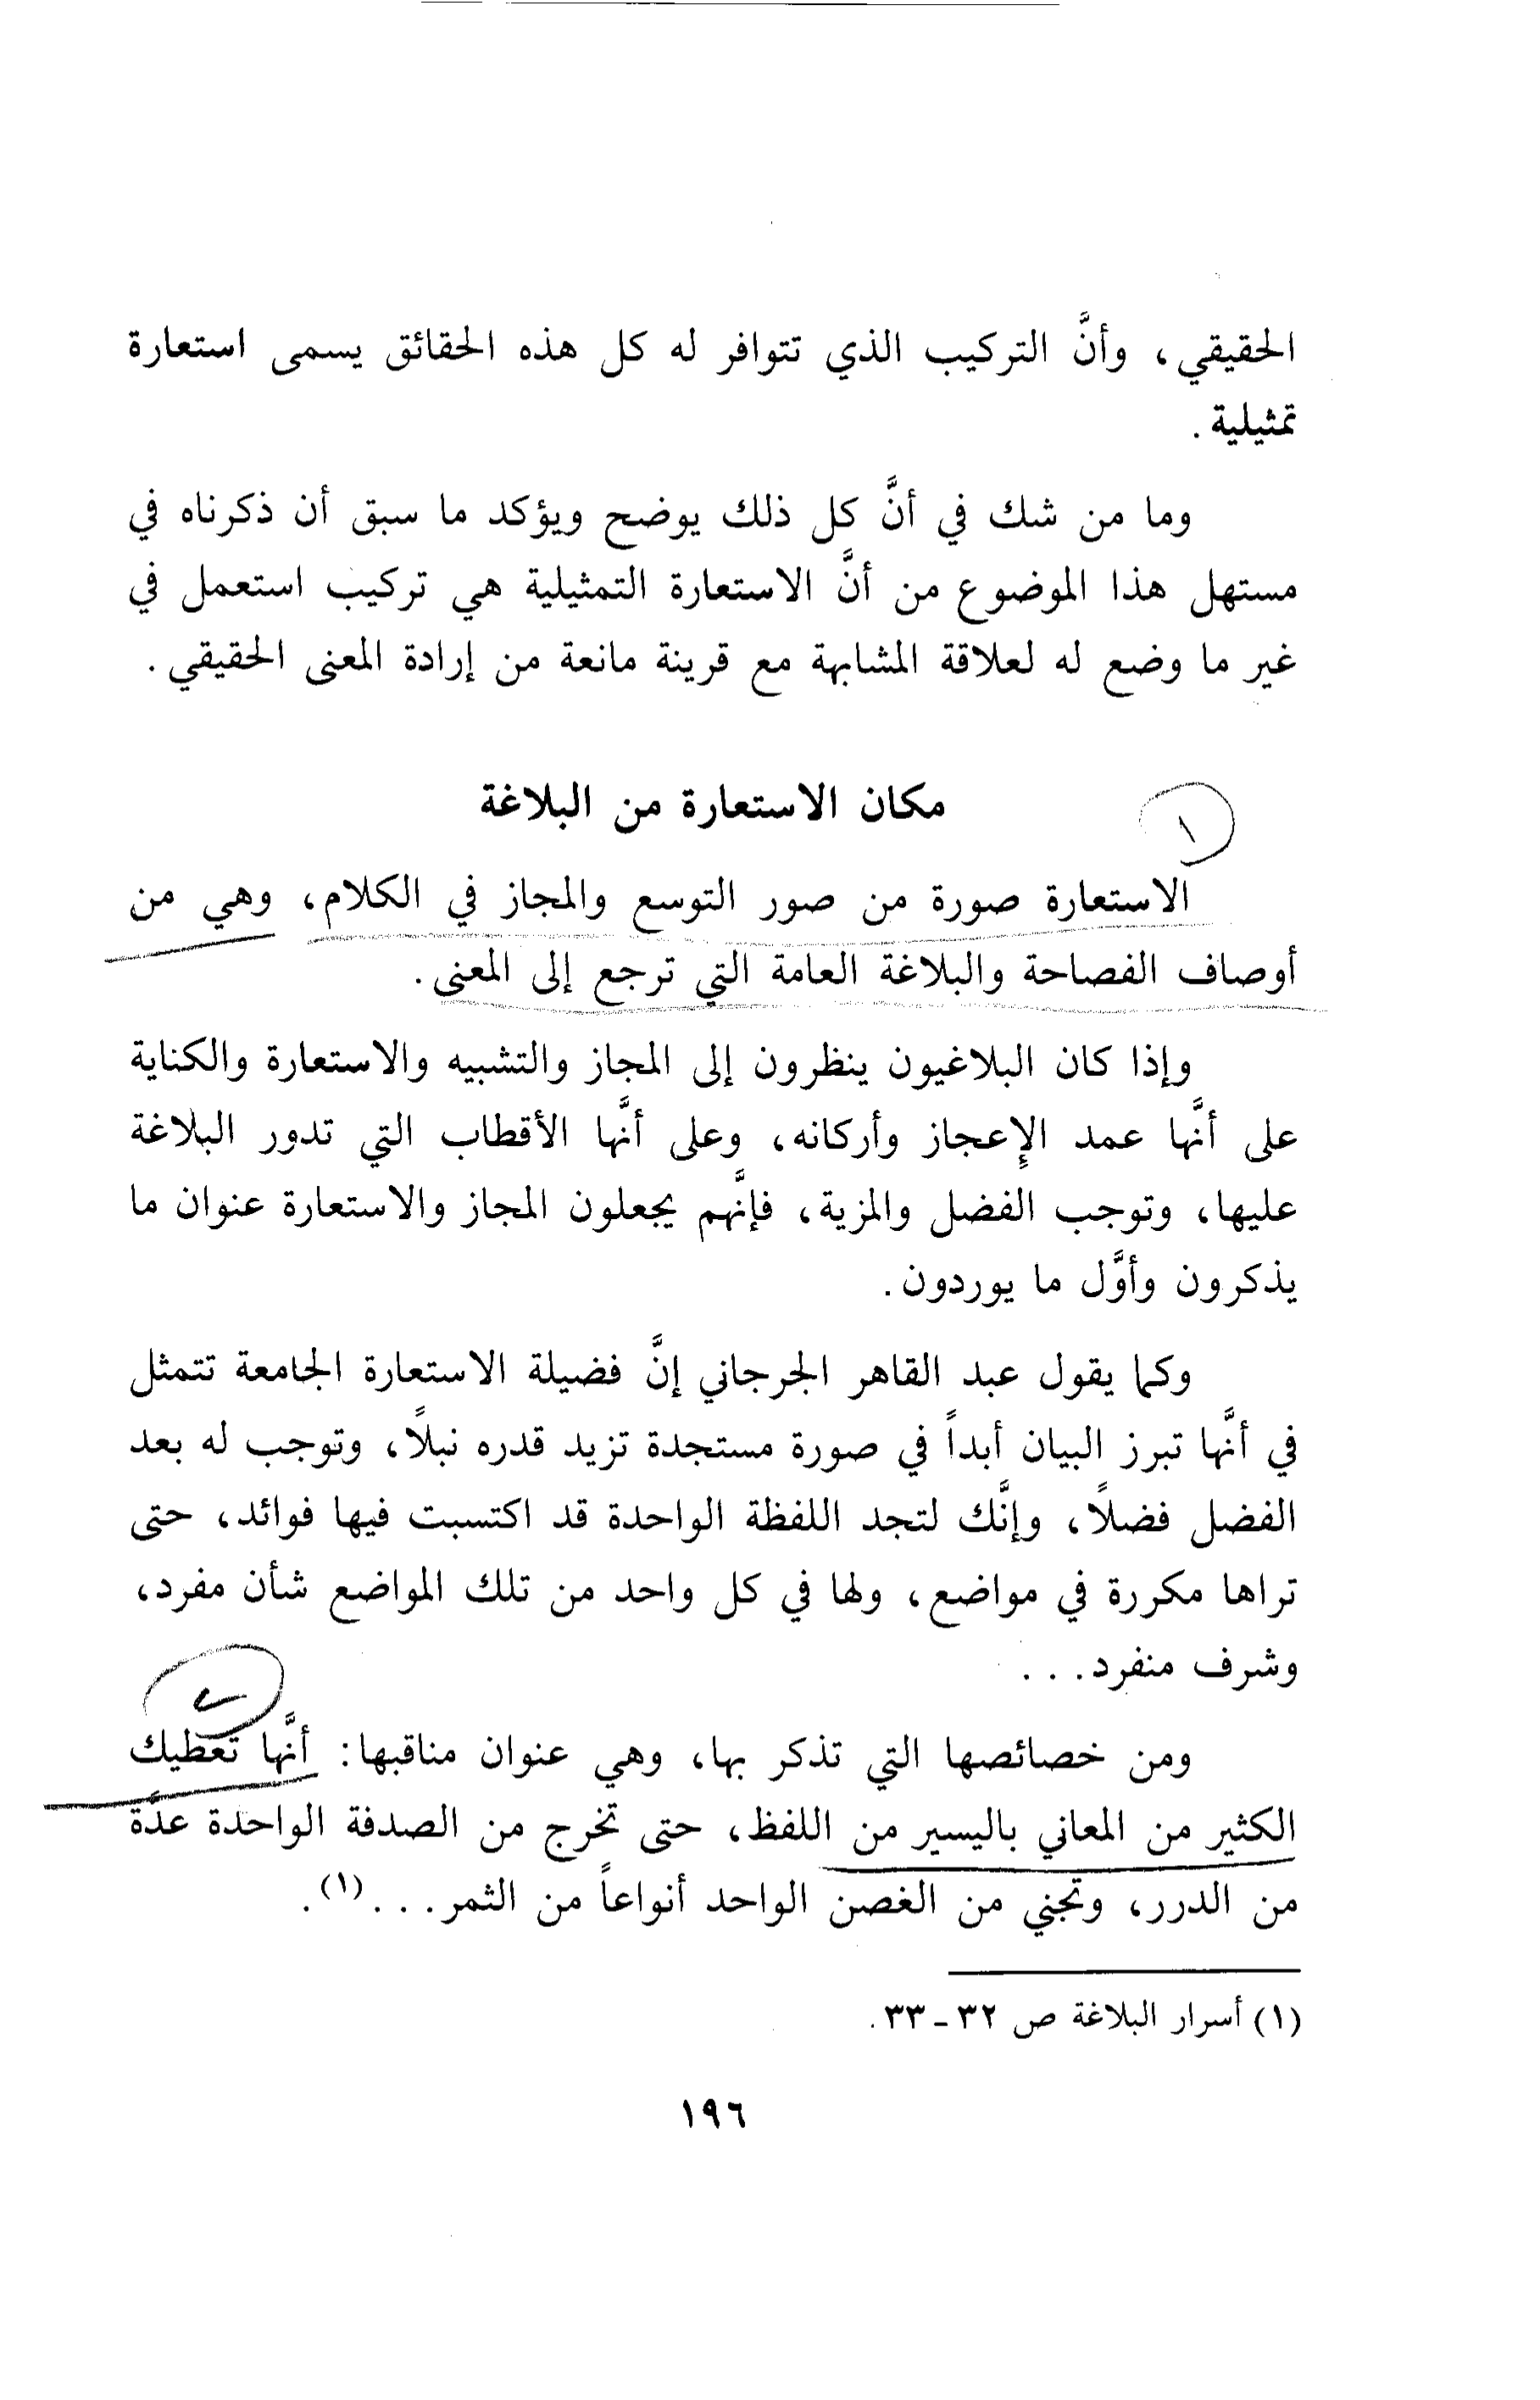 الحقيقي، وأنَّ التركيب الذي تتوافر له كل هذه الحقائق يسمى استعارة
تمثيلية.
وما من شك في أنَّ كل ذلك يوضح ويؤكد ما سبق أن ذكرناه في
مستهل هذا الموضوع من أنَّ الاستعارة التمثيلية هي تركيب استعمل في
غير ما وضع له لعلاقة المشابهة مع قرينة مانعة من إرادة المعنى الحقيقي.
مكان الاستعارة من البلاغة
١
الاستعارة صورة من صور التوسع والمجاز في الكلام، وهي من
أوصاف الفصاحة والبلاغة العامة التي ترجع إلى المعنى.
وإذا كان البلاغيون ينظرون إلى المجاز والتشبيه والاستعارة والكناية
على أنَّها عمد الإِعجاز وأركانه، وعلى أنَّها الأقطاب التي تدور البلاغة
عليها، وتوجب الفضل والمزية، فإنَّهم يجعلون المجاز والاستعارة عنوان ما
يذكرون وأوَّل ما يوردون.
وكما يقول عبد القاهر الجرجاني إنَّ فضيلة الاستعارة الجامعة تتمثل
في أنَّها تبرز البيان أبداً في صورة مستجدة تزيد قدره نبلًا، وتوجب له بعد
الفضل فضلًا، وإنَّك لتجد اللفظة الواحدة قد اكتسبت فيها فوائد، حتى
تراها مكررة في مواضع، ولها في كل واحد من تلك المواضع شأن مفرد،
وشرف منفرد...
٢
ومن خصائصها التي تذكر بها، وهي عنوان مناقبها: أنَّها تعطيك
الكثير من المعاني باليسير من اللفظ، حتى تخرج من الصدفة الواحدة عدَّة
من الدرر، وتجني من الغصن الواحد أنواعاً من الثمر...(١).
(١) أسرار البلاغة ص ٣٢ - ٣٣.
١٩٦